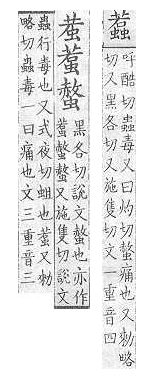 蠚
呼酷切蟲毒又曰灼切螫痛也又勑略
切又黑各切又施隻切文一重音四
螫
黑各切說文螫也亦作
螫螫又施隻切說文
蟲行毒也又式夜切蛆也螫又勑
略切蟲毒一曰痛也文三重音三